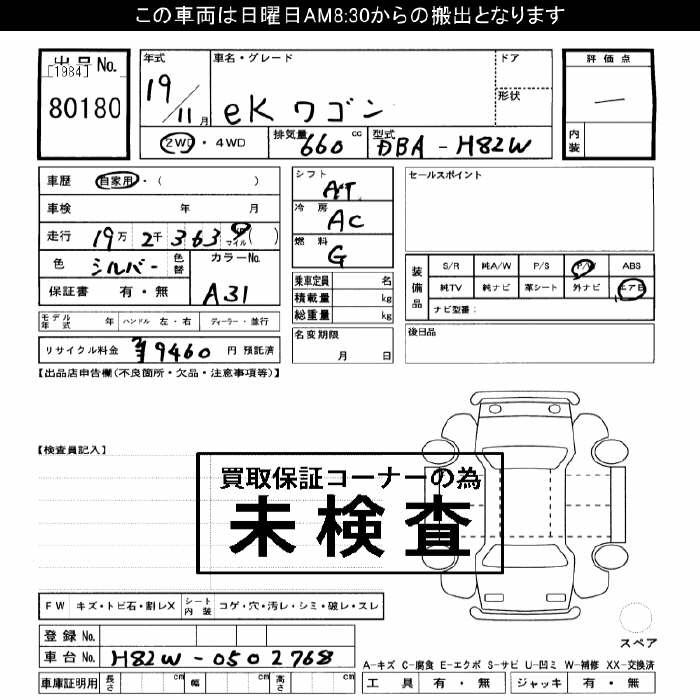 この車両は日曜日AM8:30からの搬出となります
出品No.
[1984]
80180
年式
19/11月
車名・グレード
eKワゴン
ドア
形状
評価点
―
内装
2WD・4WD
排気量 660 cc
型式 DBA-H82W
車歴 自家用・( )
車検 年 月
走行 19万 2千 3 6 3 9 km マイル ( )
色 シルバー 色替
カラーNo. A31
保証書 有・無
モデル年式 年 ハンドル 左・右 ディーラー・並行
リサイクル料金 ¥9460 円 預託済
シフト AT
冷房 AC
燃料 G
乗車定員 名
積載量 kg
総重量 kg
名変期限
月 日
セールスポイント
装備品
S/R 純A/W P/S P/W ABS
純TV 純ナビ 革シート 外ナビ エアB
ナビ型番:
後日品
【出品店申告欄(不良箇所・欠品・注意事項等)】
【検査員記入】
買取保証コーナーの為
未検査
FW キズ・トビ石・割レX シート内装 コゲ・穴・汚レ・シミ・破レ・スレ
登録No.
車台No. H82W-0502768
車庫証明用 長さ cm 幅 cm 高さ cm
スペア
A-キズ C-腐食 E-エクボ S-サビ U-凹ミ W-補修 XX-交換済
工具 有・無 ジャッキ 有・無